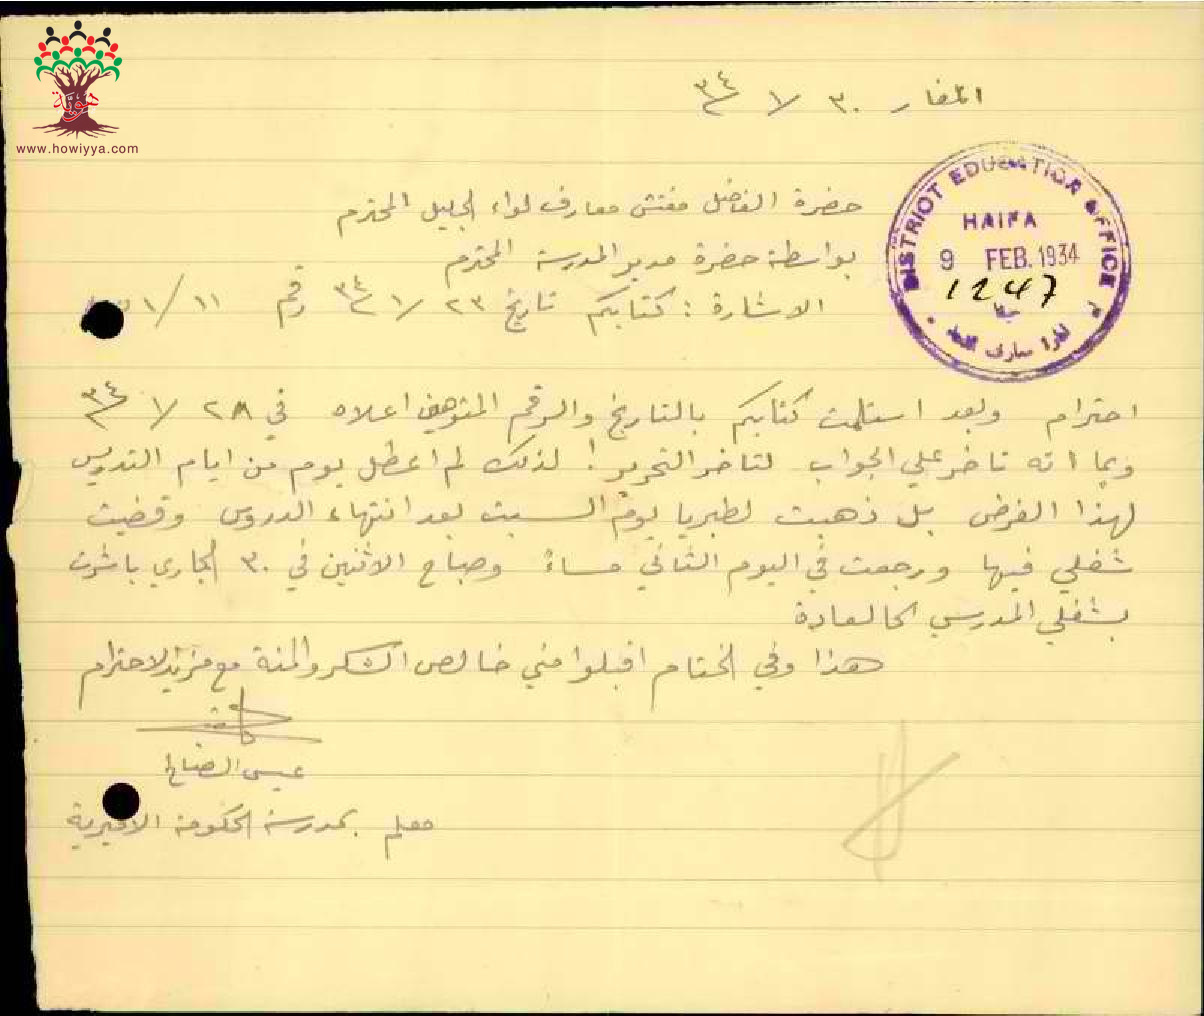 هوية
www.howiyya.com
المغار ٣٠ / ١ / ٣٤
DISTRICT EDUCATION OFFICE
HAIFA
9 FEB. 1934
1247
حيفا
حضرة الفاضل مفتش معارف لواء الجليل المحترم
بواسطة حضرة مدير المدرسة المحترم
الاشارة : كتابكم تاريخ ٢٣ / ١ / ٣٤ رقم ١١ / ١
احترام وبعد استلمت كتابكم بالتاريخ والرقم المنوهين اعلاه في ٢٨ / ١ / ٣٤
وبما انه تاخر علي الجواب لتاخر التحرير ! لذلك لم اعطل يوم من ايام التدريس
لهذا الغرض بل ذهبت لطبريا يوم السبت بعد انتهاء الدروس وقضيت
شغلي فيها ورجعت في اليوم الثاني مساءً وصباح الاثنين في ٣٠ الجاري باشرت
بشغلي المدرسي كالعادة
هذا وفي الختام اقبلوا مني خالص الشكر والمنة مع مزيد الاحترام
عيسى الصباغ
معلم بمدرسة الحكومة الاميرية